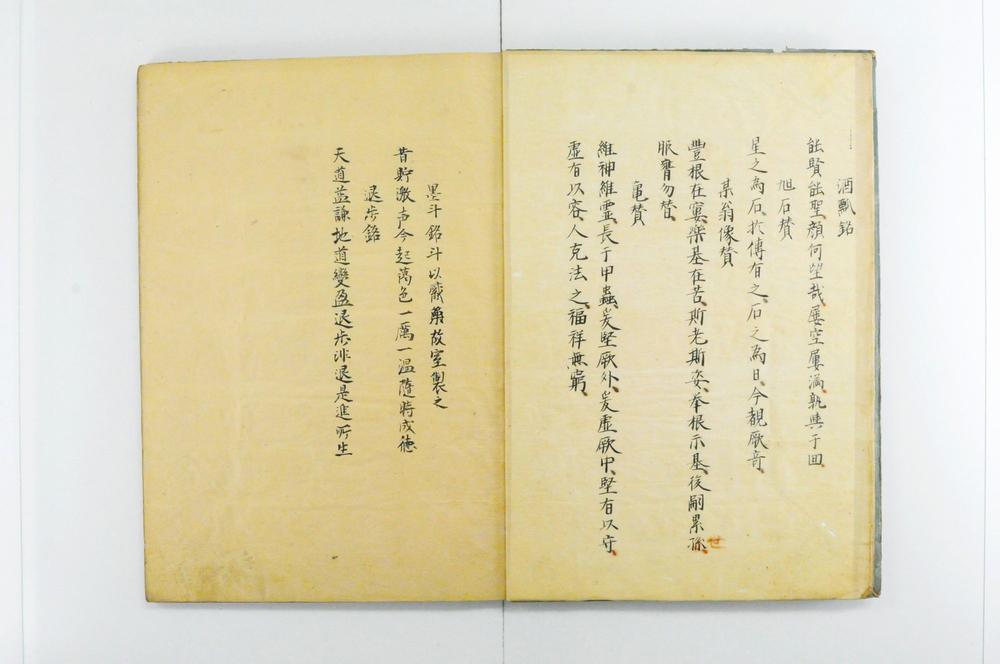 酒瓢銘
能賢能聖、顔何望哉、屡空屢満、孰與于回、
旭石賛
星之為石、於傳有之、石之為日、今覩厥奇、
某翁像賛
豐根在窶、樂基在苦、斯老斯姿、奉根示基、後嗣累孫、世
脈膂勿替、
亀賛
維神維霊、長于甲蟲、爰堅厥外、爰虚厥中、堅有以守、
虚有以容、人克法之、福祥無窮、
墨斗銘斗以蔽第故室製之
昔貯激声今起萬色一厲一温隨時成徳
退歩銘
天道益謙地道變盈退歩非退是進所生